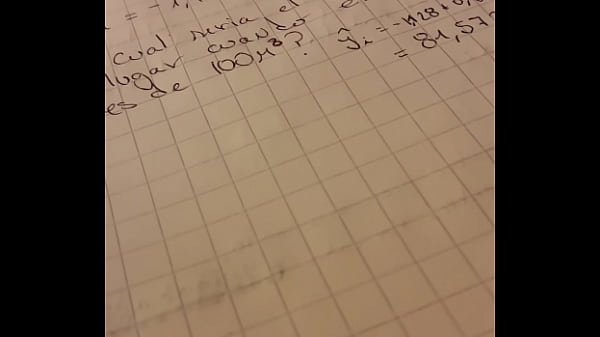 = -1,
cual seria el
lugar cuando
es de 100 M³? ŷi = -1128 + 0,
= 81,57